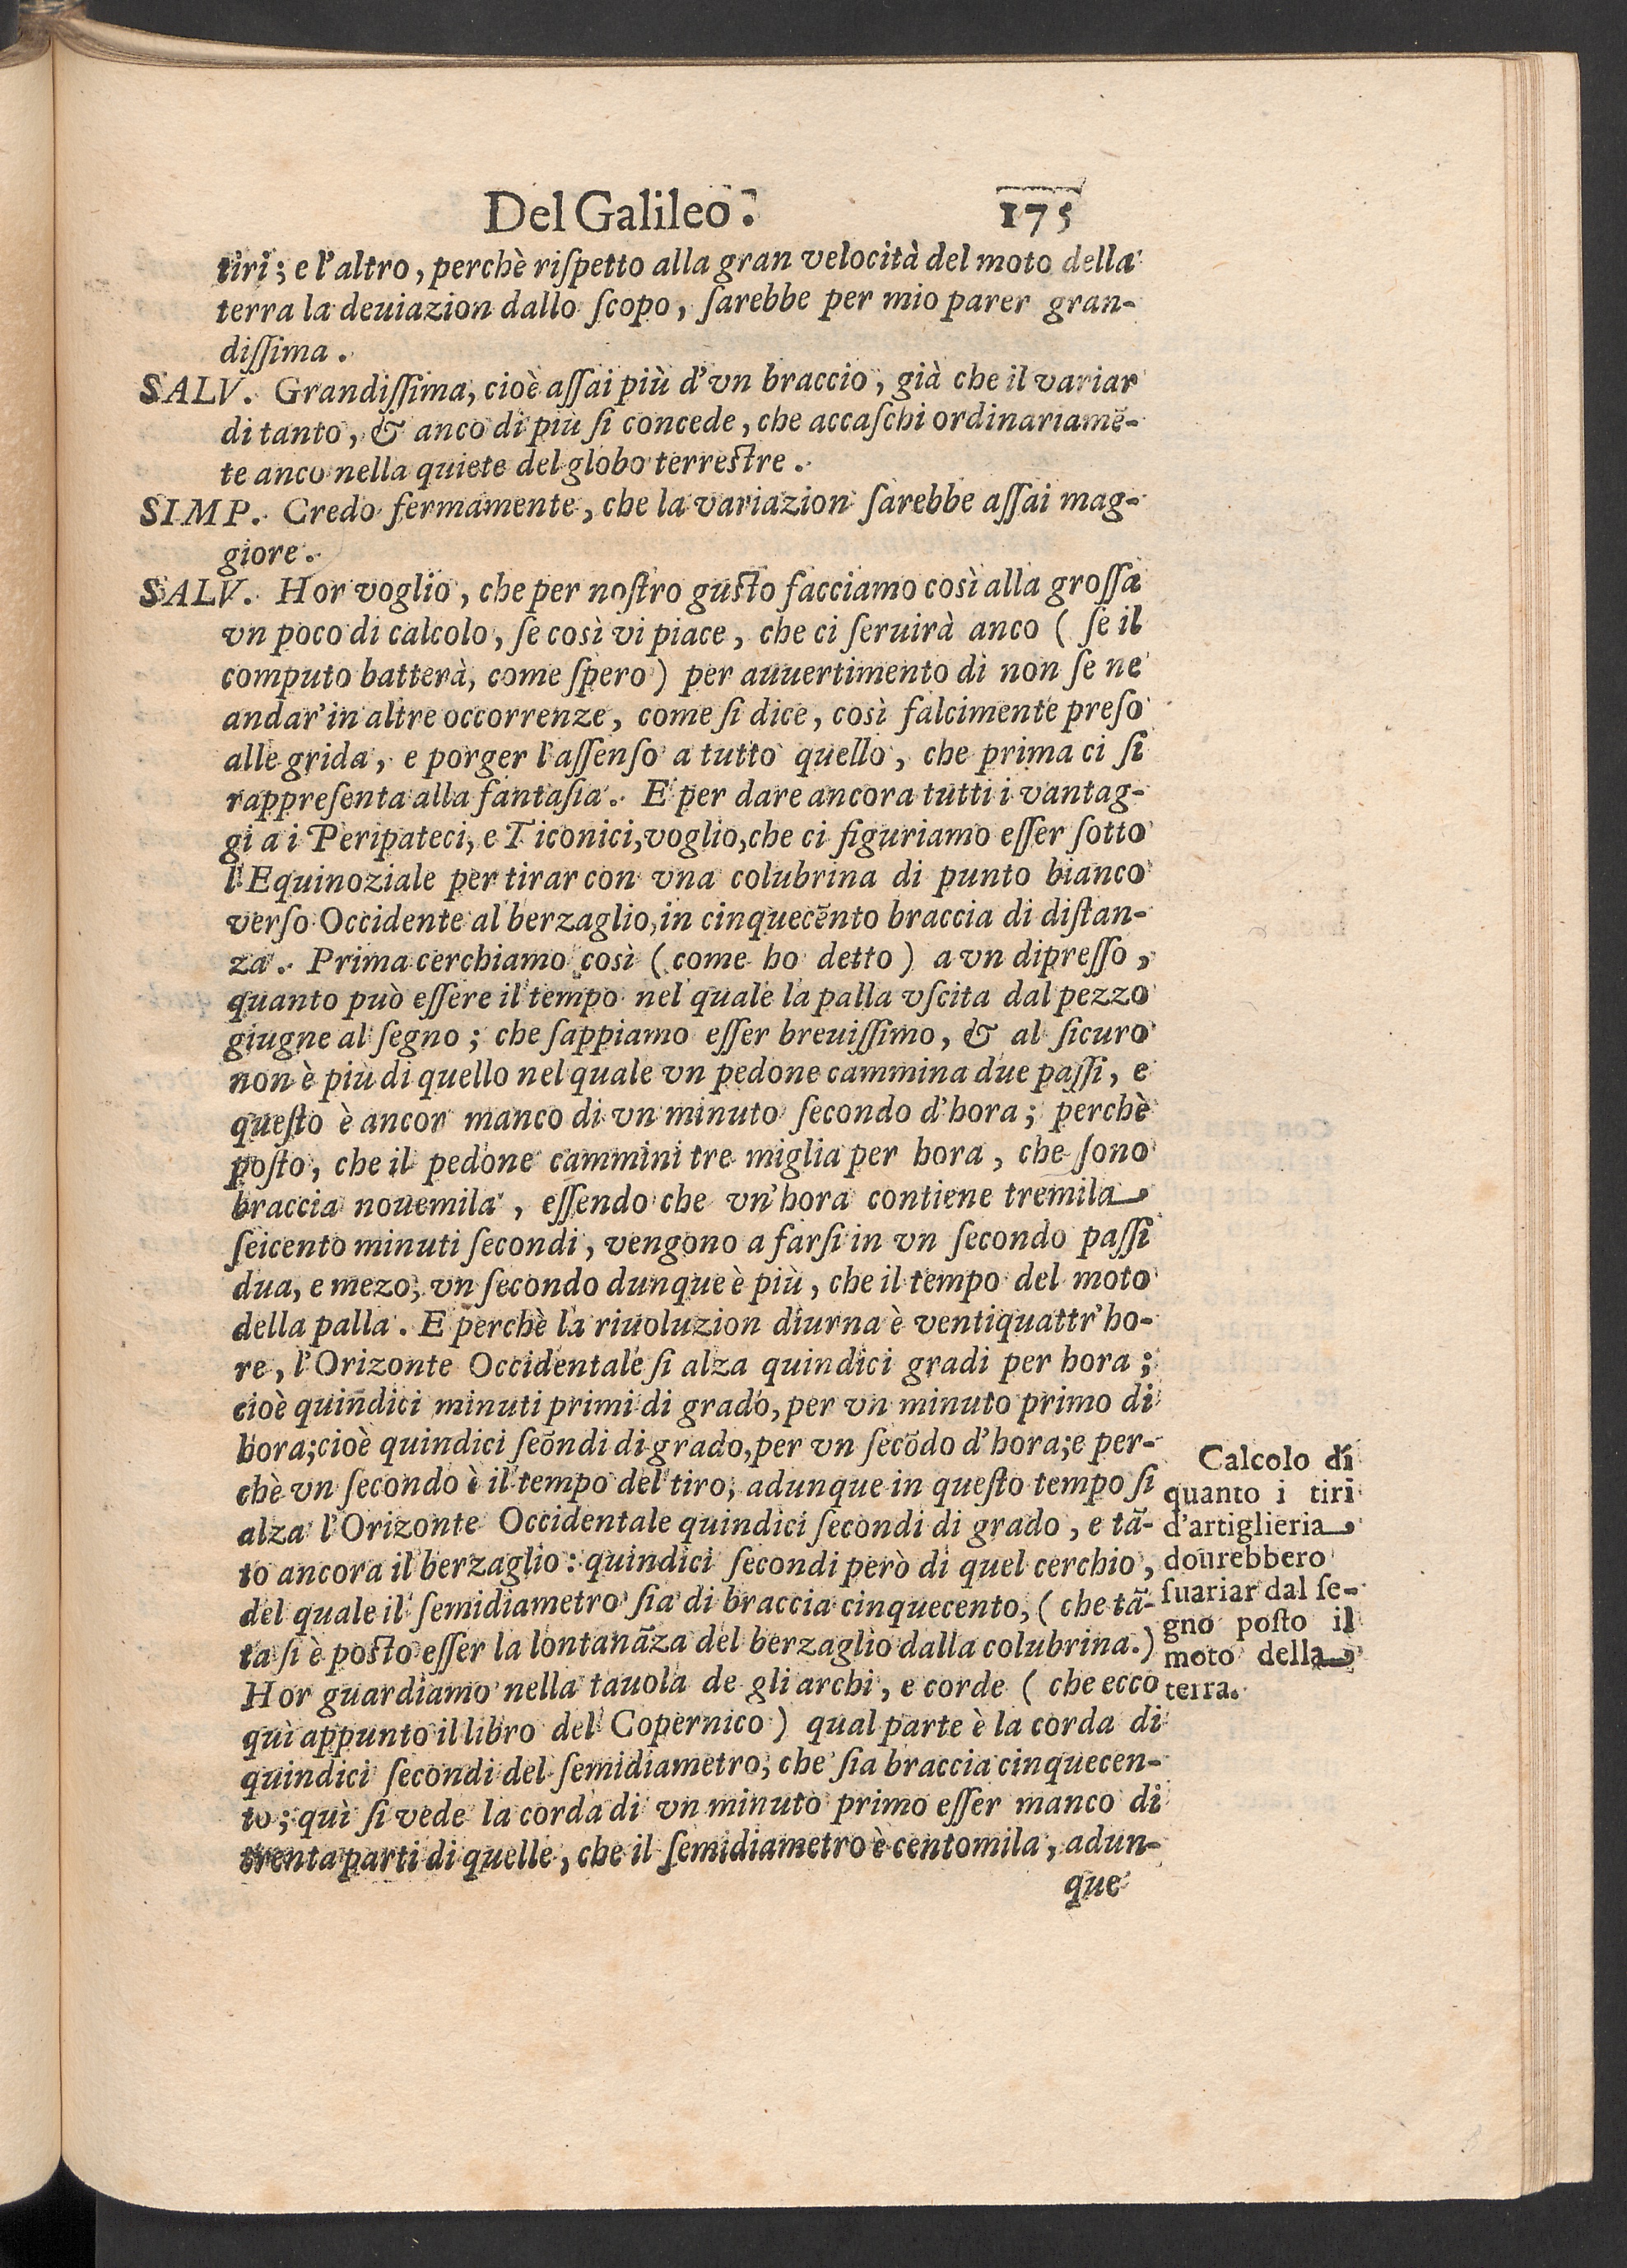 Del Galileo. 175
tiri; e l'altro, perchè riſpetto alla gran velocità del moto della
terra la deuiazion dallo ſcopo, ſarebbe per mio parer gran-
diſſima.
SALV. Grandiſſima, cioè aſſai più d'vn braccio, già che il variar
di tanto, & anco di più ſi concede, che accaſchi ordinariamẽ-
te anco nella quiete del globo terreſtre.
SIMP. Credo fermamente, che la variazion ſarebbe aſſai mag-
giore.
SALV. Hor voglio, che per noſtro guſto facciamo così alla groſſa
vn poco di calcolo, ſe così vi piace, che ci ſeruirà anco (ſe il
computo batterà, come ſpero) per auuertimento di non ſe ne
andar' in altre occorrenze, come ſi dice, così falcimente preſo
alle grida, e porger l'aſſenſo a tutto quello, che prima ci ſi
rappreſenta alla fantaſia. E per dare ancora tutti i vantag-
gi a i Peripateci, e Ticonici, voglio, che ci figuriamo eſſer ſotto
l'Equinoziale per tirar con vna colubrina di punto bianco
verſo Occidente al berzaglio, in cinquecẽnto braccia di diſtan-
za. Prima cerchiamo così (come ho detto) a vn dipreſſo,
quanto può eſſere il tempo nel quale la palla vſcita dal pezzo
giugne al ſegno; che ſappiamo eſſer breuiſſimo, & al ſicuro
non è più di quello nel quale vn pedone cammina due paſſi, e
queſto è ancor manco di vn minuto ſecondo d'hora; perchè
poſto, che il pedone cammini tre miglia per hora, che ſono
braccia nouemila, eſſendo che vn' hora contiene tremila
ſeicento minuti ſecondi, vengono a farſi in vn ſecondo paſſi
dua, e mezo, vn ſecondo dunque è più, che il tempo del moto
della palla. E perchè la riuoluzion diurna è ventiquattr' ho-
re, l'Orizonte Occidentale ſi alza quindici gradi per hora;
cioè quiñdici minuti primi di grado, per vn minuto primo di
hora; cioè quindici ſeõndi di grado, per vn ſecõdo d'hora; e per-
chè vn ſecondo è il tempo del tiro, adunque in queſto tempo ſi
alza l'Orizonte Occidentale quindici ſecondi di grado, e tã-
to ancora il berzaglio: quindici ſecondi però di quel cerchio,
del quale il ſemidiametro ſia di braccia cinquecento, (che tã-
ta ſi è poſto eſſer la lontanãza del berzaglio dalla colubrina.)
Hor guardiamo nella tauola de gli archi, e corde (che ecco
quì appunto il libro del Copernico) qual parte è la corda di
quindici ſecondi del ſemidiametro, che ſia braccia cinquecen-
to; quì ſi vede la corda di vn minuto primo eſſer manco di
trenta parti di quelle, che il ſemidiametro è centomila, adun-
que
Calcolo di
quanto i tiri
d'artiglieria
dourebbero
ſuariar dal ſe-
gno poſto il
moto della
terra.